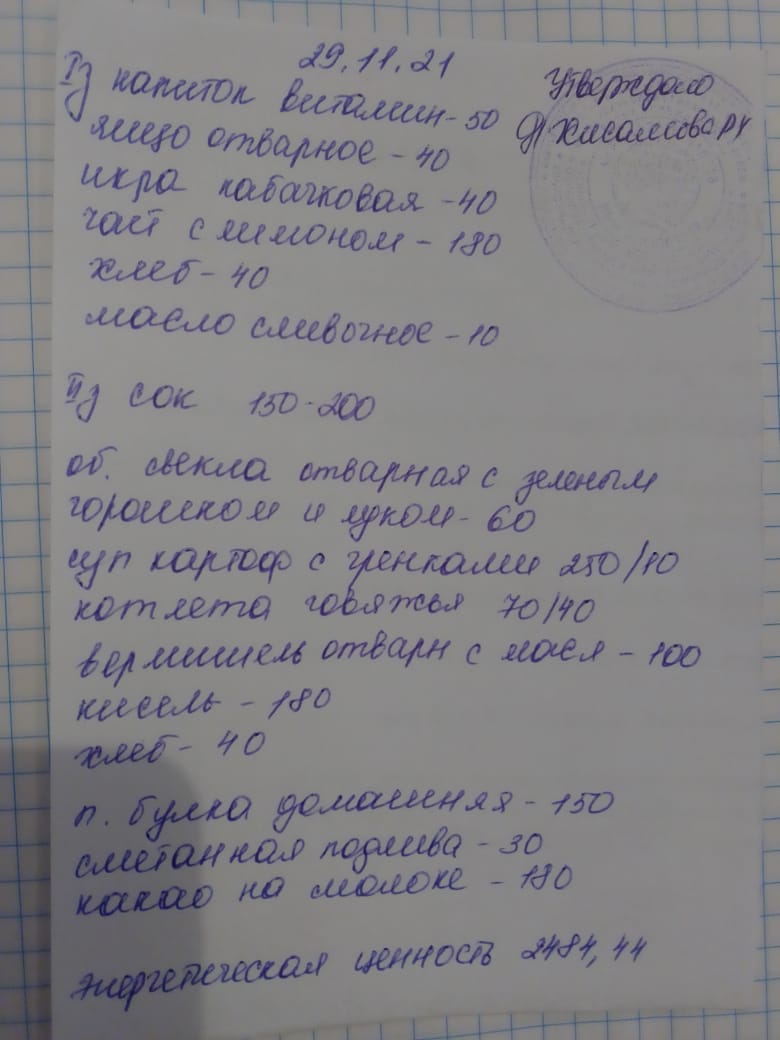 29.11.21
Утверждаю
Iз напиток витамин - 50
яйцо отварное - 40
икра кабачковая - 40
чай с лимоном - 180
хлеб - 40
масло сливочное - 10
IIз сок 150-200
об. свекла отварная с зеленым
горошком и луком - 60
суп картоф с гренками 250/10
котлета говяжья 70/40
вермишель отварн с масл - 100
кисель - 180
хлеб - 40
п. булка домашняя - 150
сметанная подлива - 30
какао на молоке - 180
энергетическая ценность 2484,44